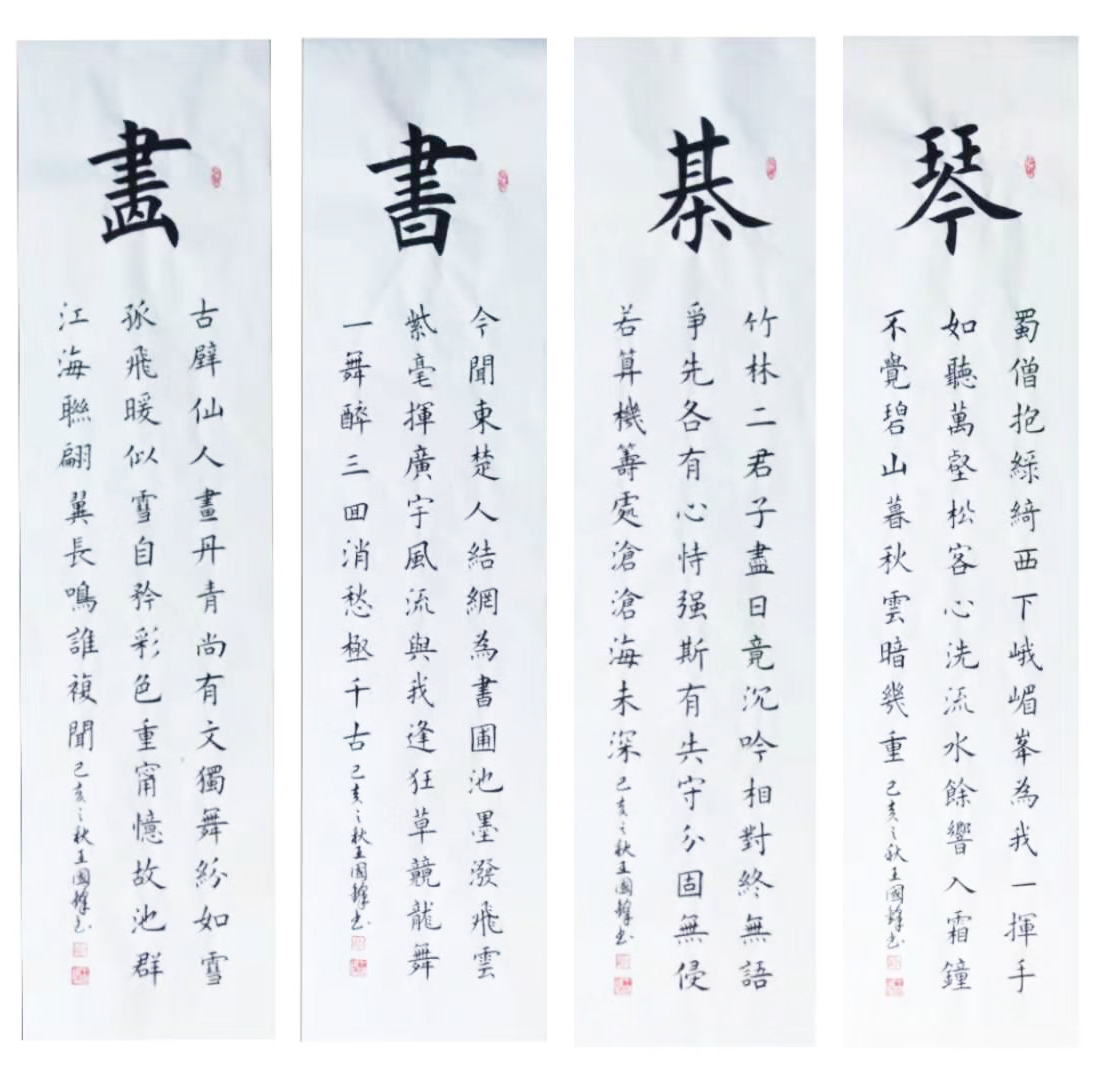 琴
蜀僧抱綠綺西下峨嵋峯為我一揮手
如聽萬壑松客心洗流水餘響入霜鐘
不覺碧山暮秋雲暗幾重己亥之秋王國書
棊
竹林二君子盡日竟沉吟相對終無語
爭先各有心恃强斯有失守分固無侵
若算機籌處滄滄海未深己亥之秋王國書
書
今聞東楚人結網為書圃池墨潑飛雲
紫毫揮廣宇風流與我逢狂草競龍舞
一舞醉三囬消愁極千古己亥之秋王國書
畫
古壁仙人畫丹青尚有文獨舞紛如雪
孤飛暖似雪自矜彩色重甯憶故池群
江海聯翩翼長鳴誰複聞己亥之秋王國書